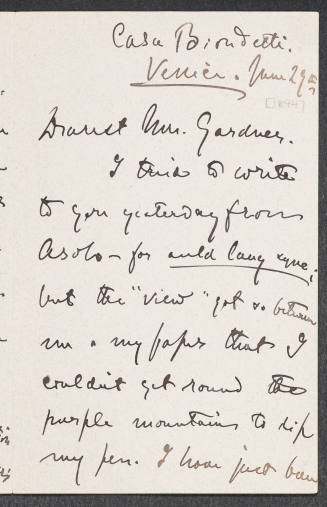 Casa Biondetti.
Venice. June 29th
[1894]
Dearest Mrs. Gardner.
I tried to write
to you yesterday from
Asolo – for auld lang syne;
but the "view" got so between
me & my paper that I
couldn't get round the
purple mountains to dip
my pen. I have just been